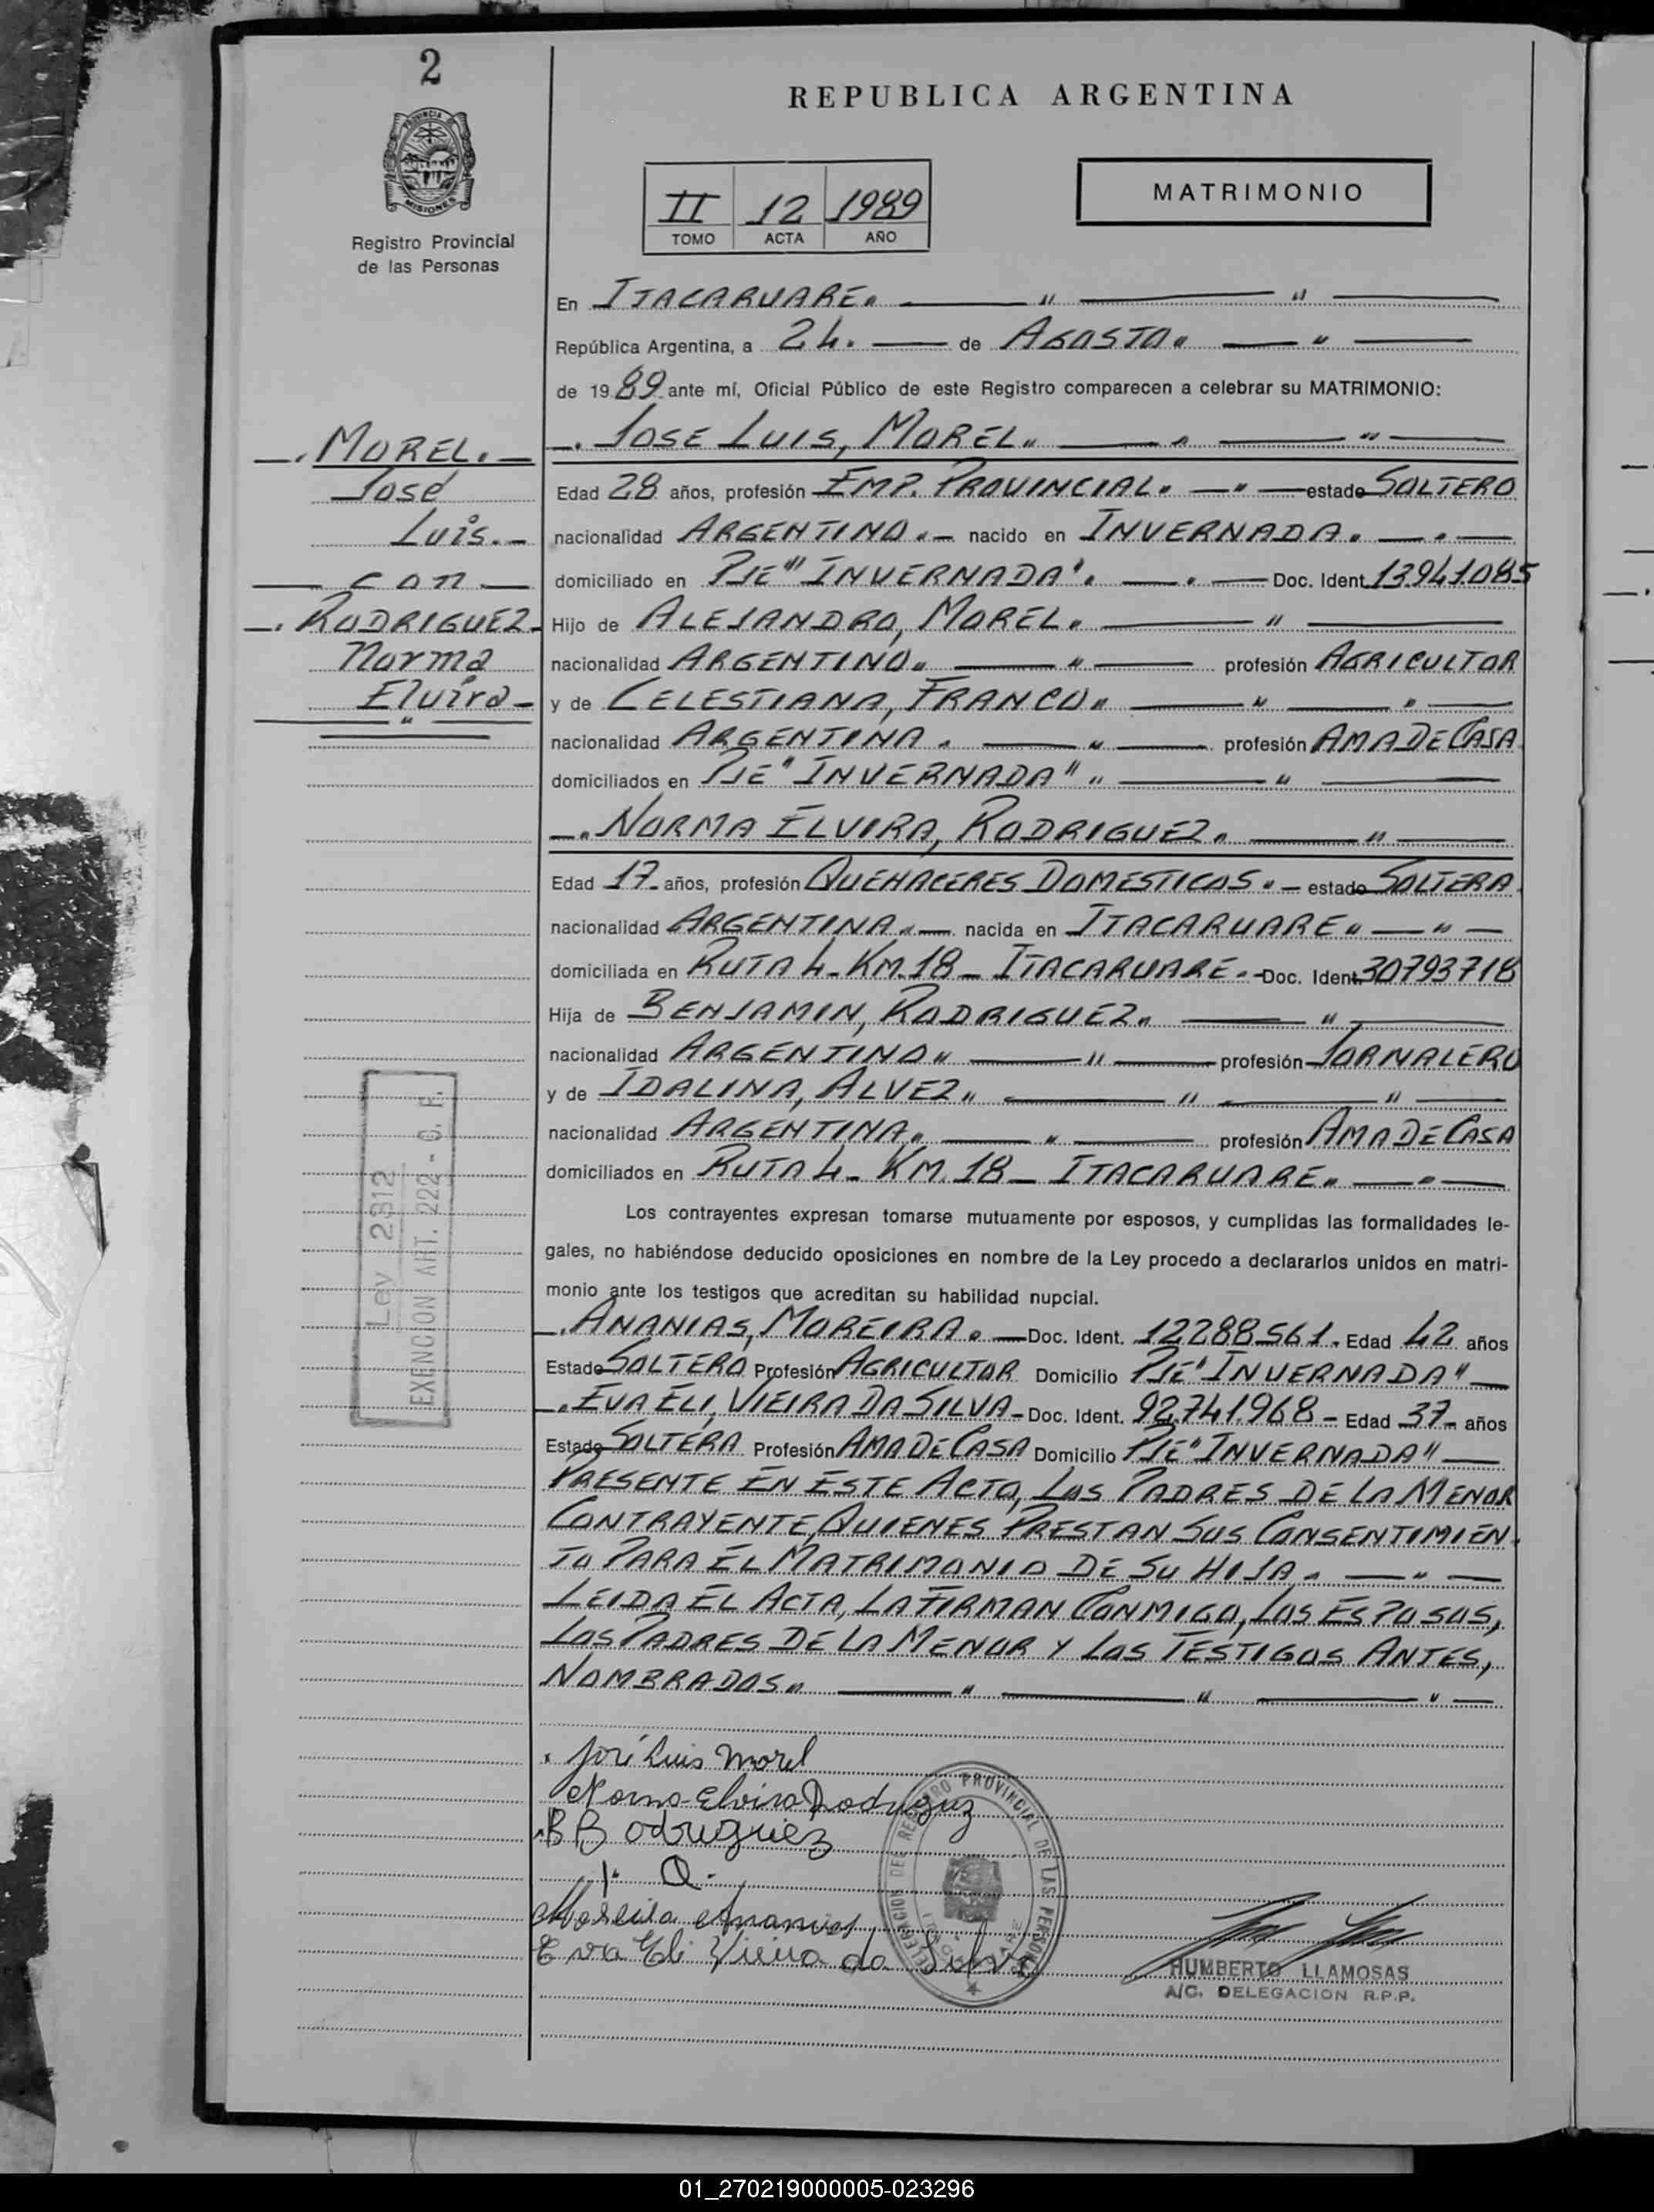 2
PROVINCIA DE
MISIONES
Registro Provincial
de las Personas
REPUBLICA ARGENTINA
MATRIMONIO
II 12 1989
TOMO ACTA AÑO
En ITACARUARE
República Argentina, a 24. de AGOSTO
de 1989 ante mí, Oficial Público de este Registro comparecen a celebrar su MATRIMONIO:
JOSE LUIS, MOREL
MOREL.
José
Luis.-
con
RODRIGUEZ
Norma
Elvira-
Edad 28 años, profesión EMP. PROVINCIAL estado SOLTERO
nacionalidad ARGENTINO nacido en INVERNADA.
domiciliado en PJE "INVERNADA". Doc. Ident. 13941085
Hijo de ALEJANDRO, MOREL.
nacionalidad ARGENTINO profesión AGRICULTOR
y de CELESTIANA, FRANCO
nacionalidad ARGENTINA. profesión AMA DE CASA
domiciliados en PJE "INVERNADA"
NORMA ELVIRA, RODRIGUEZ.
Edad 17 años, profesión QUEHACERES DOMESTICOS.- estado SOLTERA
nacionalidad ARGENTINA nacida en ITACARUARE
domiciliada en RUTA 4- KM.18- ITACARUARE.- Doc. Ident. 30793718
Hija de BENJAMIN, RODRIGUEZ
nacionalidad ARGENTINO profesión JORNALERO
y de IDALINA, ALVEZ
nacionalidad ARGENTINA profesión AMA DE CASA
domiciliados en RUTA 4- KM.18- ITACARUARE
Los contrayentes expresan tomarse mutuamente por esposos, y cumplidas las formalidades le-
gales, no habiéndose deducido oposiciones en nombre de la Ley procedo a declararlos unidos en matri-
monio ante los testigos que acreditan su habilidad nupcial.
Ley 2312
EXENCION ART. 222 - C. F.
ANANIAS, MOREIRA. Doc. Ident. 12288561. Edad 42 años
Estado SOLTERO Profesión AGRICULTOR Domicilio PJE "INVERNADA"
EVA ELI, VIEIRA DA SILVA- Doc. Ident. 92.741.968- Edad 37- años
Estado SOLTERA Profesión AMA DE CASA Domicilio PJE "INVERNADA"
PRESENTE EN ESTE ACTO, LOS PADRES DE LA MENOR
CONTRAYENTE, QUIENES PRESTAN SUS CONSENTIMIEN-
TO PARA EL MATRIMONIO DE SU HIJA.
LEIDA EL ACTA, LA FIRMAN CONMIGO, LOS ESPOSOS,
LOS PADRES DE LA MENOR Y LOS TESTIGOS ANTES,
NOMBRADOS
José Luis Morel
Norma Elvira Rodriguez
B Rodriguez
I. A.
Moreira Ananias
Eva Eli Vieira da Silva
DELEGACION DEL REGISTRO PROVINCIAL DE LAS PERSONAS
HUMBERTO LLAMOSAS
A/C. DELEGACION R.P.P.
01_270219000005-023296